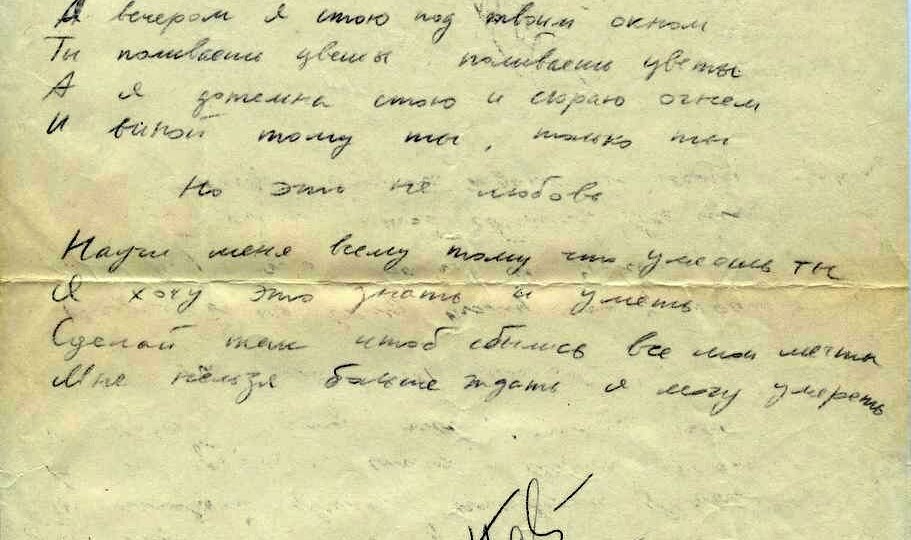 А вечером я стою под твоим окном
Ты поливаешь цветы поливаешь цветы
А я дотемна стою и сгораю огнем
И виной тому ты, только ты
Но это не любовь
Научи меня всему тому что умеешь ты
Я хочу это знать и уметь
Сделай так чтоб сбылись все мои мечты
Мне нельзя больше ждать я могу умереть